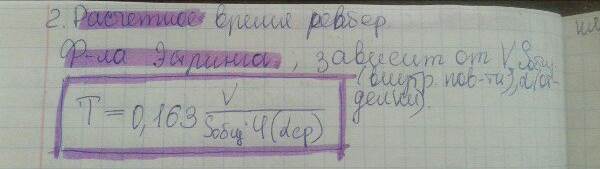 2. Расчетное время ревбер
Ф-ла Эйринга, зависит от V, Sобщ.
(внутр. пов-ти), α (от-
делки).
T = 0,163 V / Sобщ · φ(αср)